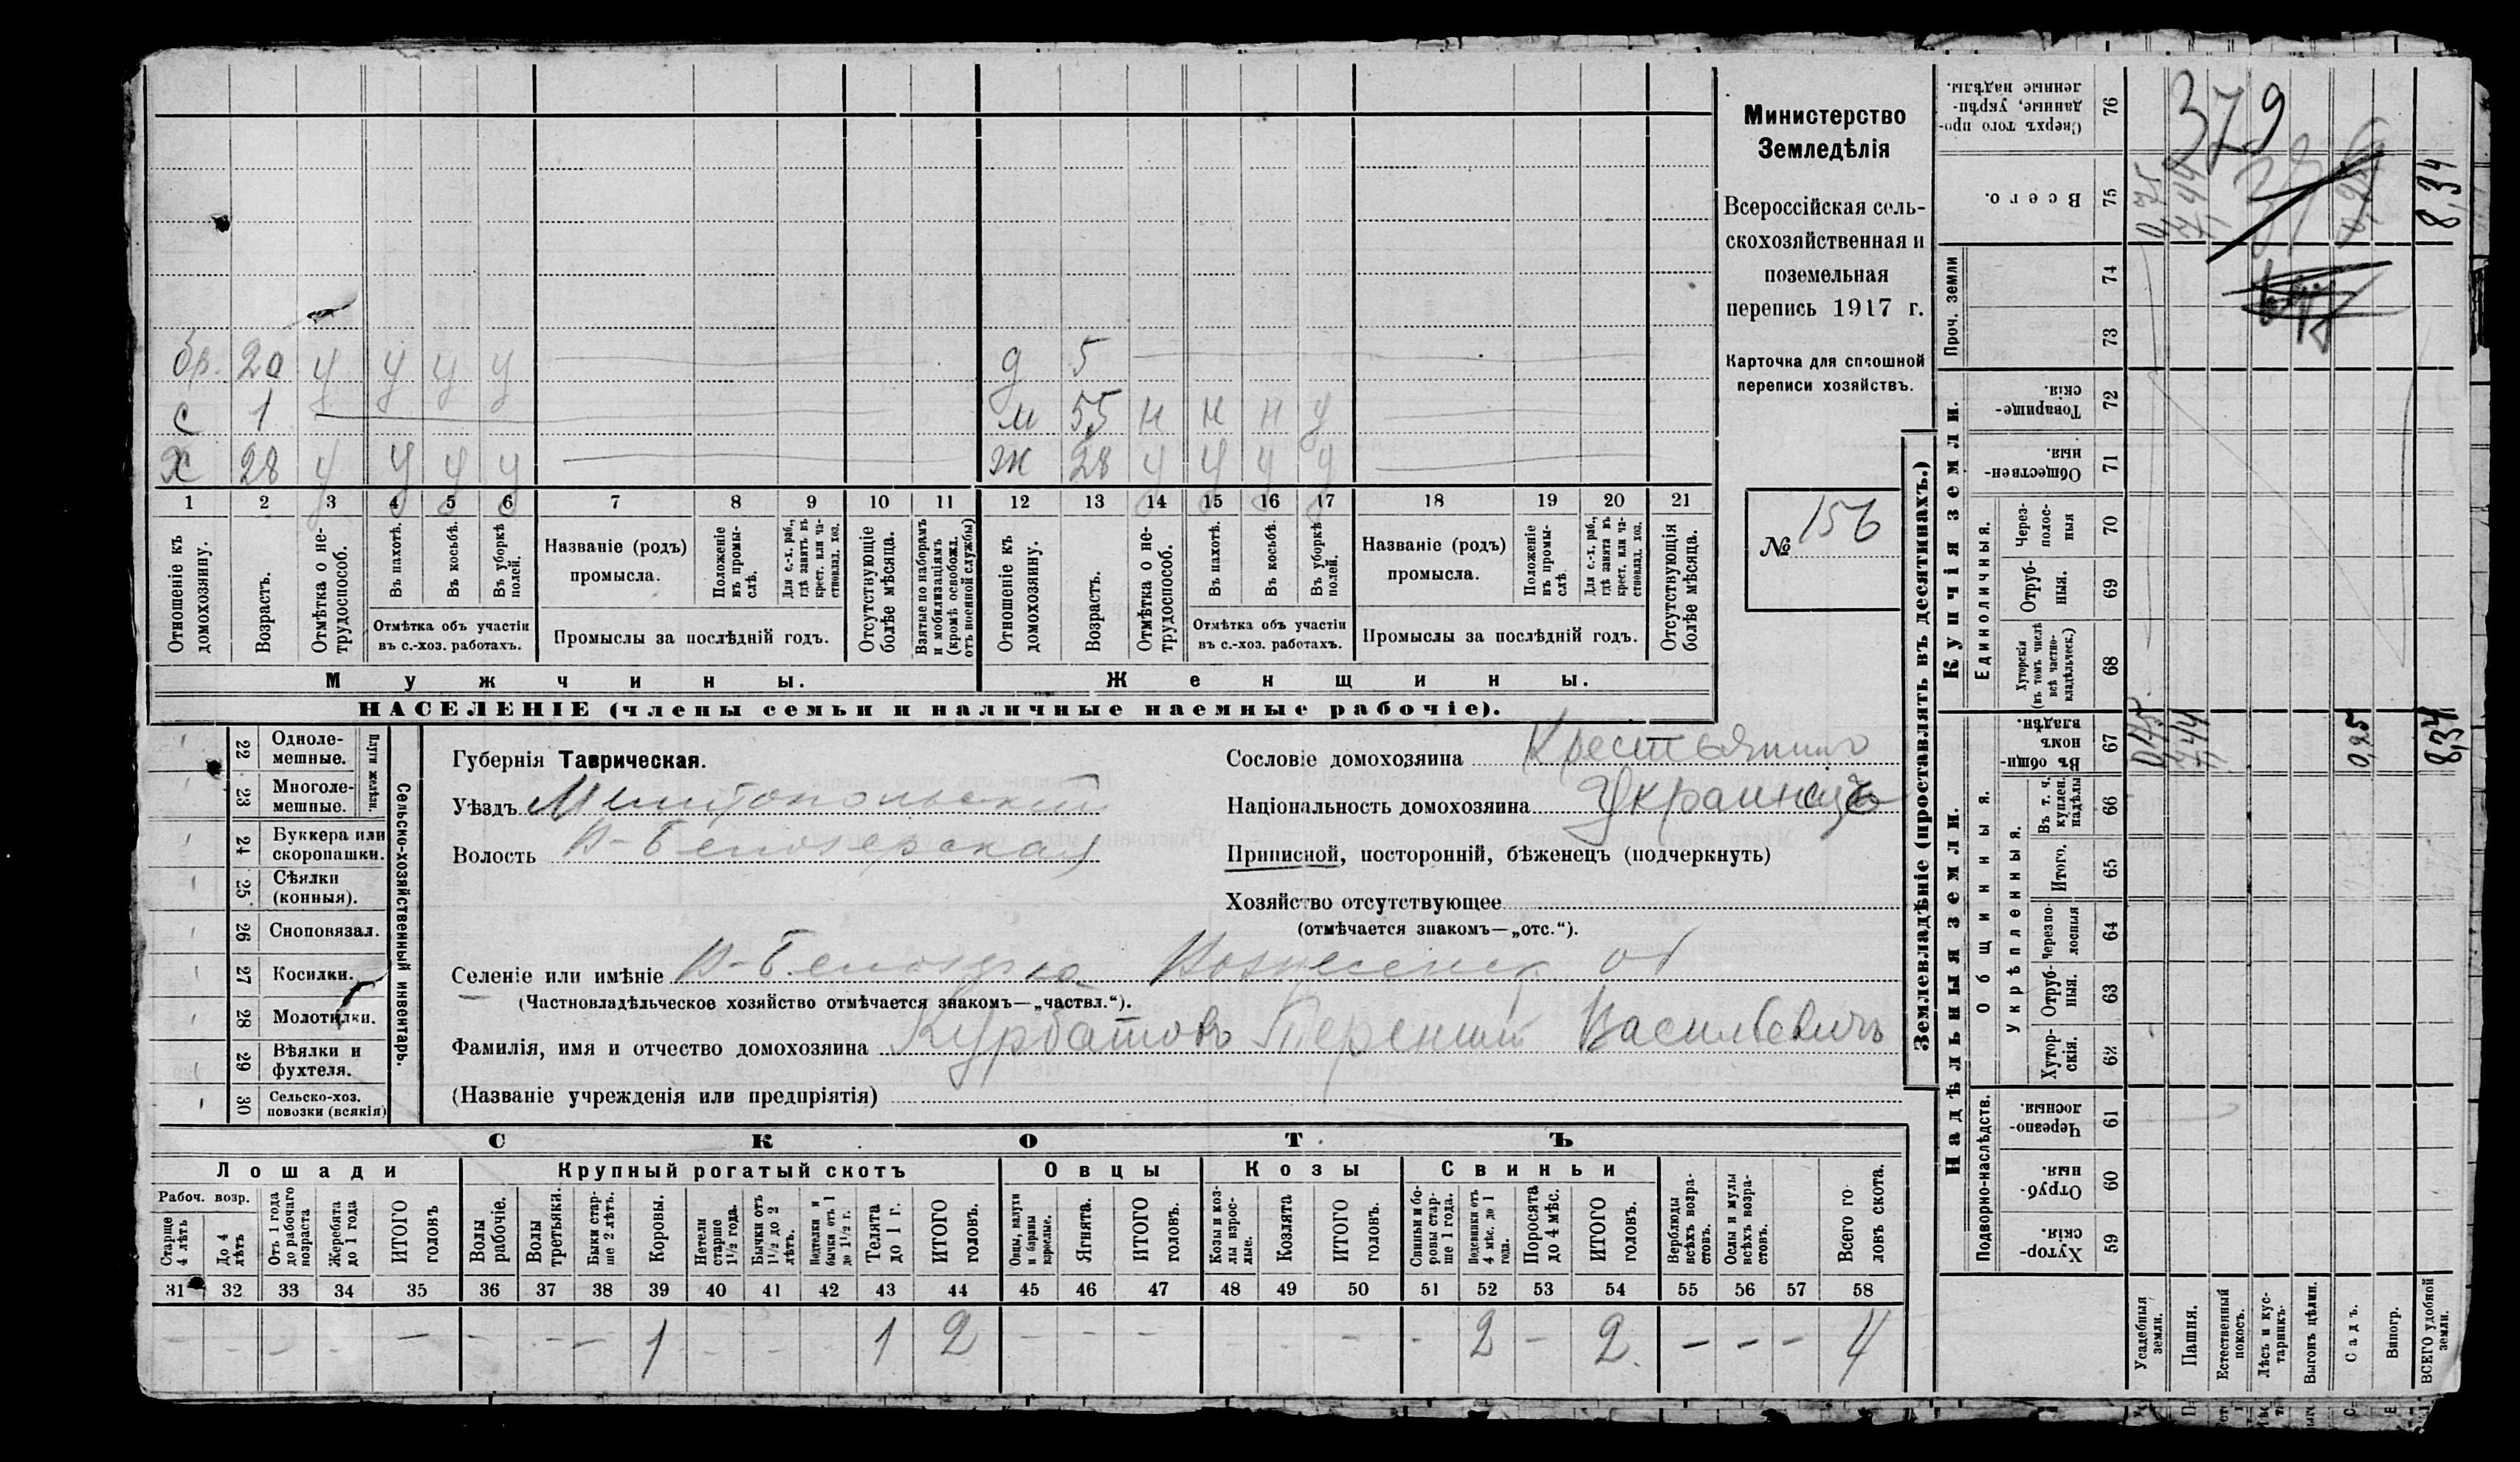 Министерство
Земледѣлія
Всероссійская сель-
скохозяйственная и
поземельная
перепись 1917 г.
Карточка для сплошной
переписи хозяйствъ.
№ 156
бр. 20 у у у у
с 1
х 28 у у у у
д 5
м 55 н н н у
ж 28 у у у у
1 2 3 4 5 6 7 8 9 10 11 12 13 14 15 16 17 18 19 20 21
Отношеніе къ домохозяину.
Возрастъ.
Отмѣтка о не-трудоспособ.
Въ пахотѣ.
Въ косьбѣ.
Въ уборкѣ полей.
Отмѣтка объ участіи въ с.-хоз. работахъ.
Названіе (родъ) промысла.
Положеніе въ промы-слѣ.
Для с.-х. раб., гдѣ занятъ въ крест. или ча-стновлад. хоз.
Промыслы за послѣдній годъ.
Отсутствующіе болѣе мѣсяца.
Взятые по наборамъ и мобилизаціямъ (кромѣ освобожд. отъ военной службы)
Отношеніе къ домохозяину.
Возрастъ.
Отмѣтка о не-трудоспособ.
Въ пахотѣ.
Въ косьбѣ.
Въ уборкѣ полей.
Отмѣтка объ участіи въ с.-хоз. работахъ.
Названіе (родъ) промысла.
Положеніе въ промы-слѣ
Для с.-х. раб., гдѣ занята въ крест. или ча-стновлад. хоз.
Промыслы за послѣдній годъ.
Отсутствующія болѣе мѣсяца.
Мужчины.
Женщины.
НАСЕЛЕНІЕ (члены семьи и наличные наемные рабочіе).
22 Одноле-мешные.
23 Многоле-мешные.
Плуги желѣзн.
24 Буккера или скоропашки.
25 Сѣялки (конныя).
26 Сноповязал.
27 Косилки.
28 Молотилки.
29 Вѣялки и фухтеля.
30 Сельско-хоз. повозки (всякія)
Сельско-хозяйственный инвентарь.
Губернія Таврическая.
Уѣздъ Мелитопольскій
Волость В-Белозерская
Сословіе домохозяина Крестьянинъ
Національность домохозяина Украинецъ
Приписной, посторонній, бѣженецъ (подчеркнуть)
Хозяйство отсутствующее
(отмѣчается знакомъ—„отс.“).
Селеніе или имѣніе В-Белозерка Вознесенск. об
(Частновладѣльческое хозяйство отмѣчается знакомъ—„частвл.“).
Фамилія, имя и отчество домохозяина Курбатовъ Терентий Васильевичъ
(Названіе учрежденія или предпріятія)
СКОТЪ
Лошади
Крупный рогатый скотъ
Овцы
Козы
Свиньи
Рабоч. возр.
Старше 4 лѣтъ
До 4 лѣтъ
Отъ 1 года до рабочаго возраста
Жеребята до 1 года
ИТОГО головъ
Волы рабочіе.
Волы третьяки.
Быки стар-ше 2 лѣтъ.
Коровы.
Нетели старше 1½ года.
Бычки отъ 1½ до 2 лѣтъ.
Подтелки и бычки отъ 1 до 1½ г.
Телята до 1 г.
ИТОГО головъ.
Овцы, валухи и бараны взрослые.
Ягнята.
ИТОГО головъ.
Козы и коз-лы взрос-лые.
Козлята
ИТОГО головъ.
Свиньи и бо-ровы стар-ше 1 года.
Подсвинки отъ 4 мѣс. до 1 года.
Поросята до 4 мѣс.
ИТОГО головъ.
Верблюды всѣхъ возра-стовъ.
Ослы и мулы всѣхъ возра-стовъ.
Всего го-ловъ скота.
31 32 33 34 35 36 37 38 39 40 41 42 43 44 45 46 47 48 49 50 51 52 53 54 55 56 57 58
– – – – – – – – 1 – – – 1 2 – – – – – – – 2 – 2. – – – 4
Землевладѣніе (проставлять въ десятинахъ.)
Купчія земли.
Надѣльныя земли.
Сверхъ того про-данные, укрѣп-ленные надѣлы. 76
Всего. 75
Проч. земли 74 73
Товарище-скія. 72
Обществен-ныя. 71
Единоличныя.
Через-полос-ныя 70
Отруб-ныя. 69
Хуторскія (въ томъ числѣ всѣ частно-владѣльческ.) 68
Общинныя.
Въ общин-номъ владѣн. 67
Укрѣпленныя.
Въ т. ч. куплен. надѣлы 66
Итого. 65
Черезпо-лосныя 64
Отруб-ныя. 63
Хутор-скія. 62
Подворно-наслѣдств.
Черезпо-лосныя. 61
Отруб-ныя. 60
Хутор-скія. 59
Усадебныя земли.
Пашня.
Естественный покосъ.
Лѣсъ и кус-тарникъ.
Выгонъ цѣлин.
Садъ.
Виногр.
ВСЕГО удобной земли.
379
7,44
8,34
7,44
0,25
8,34